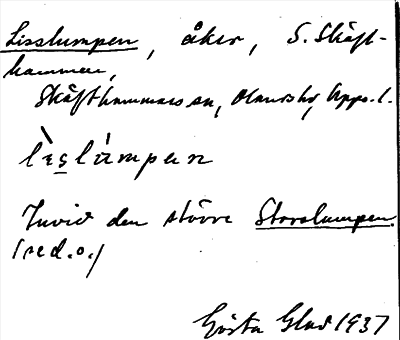 Lisslumpen, åker, S. Skäft-
hammar,
Skäfthammars sn, Olands hd, Upps. l.
lìslúmpen
Invid den större Storslumpen.
(red. o.)
Gösta Glad 1937